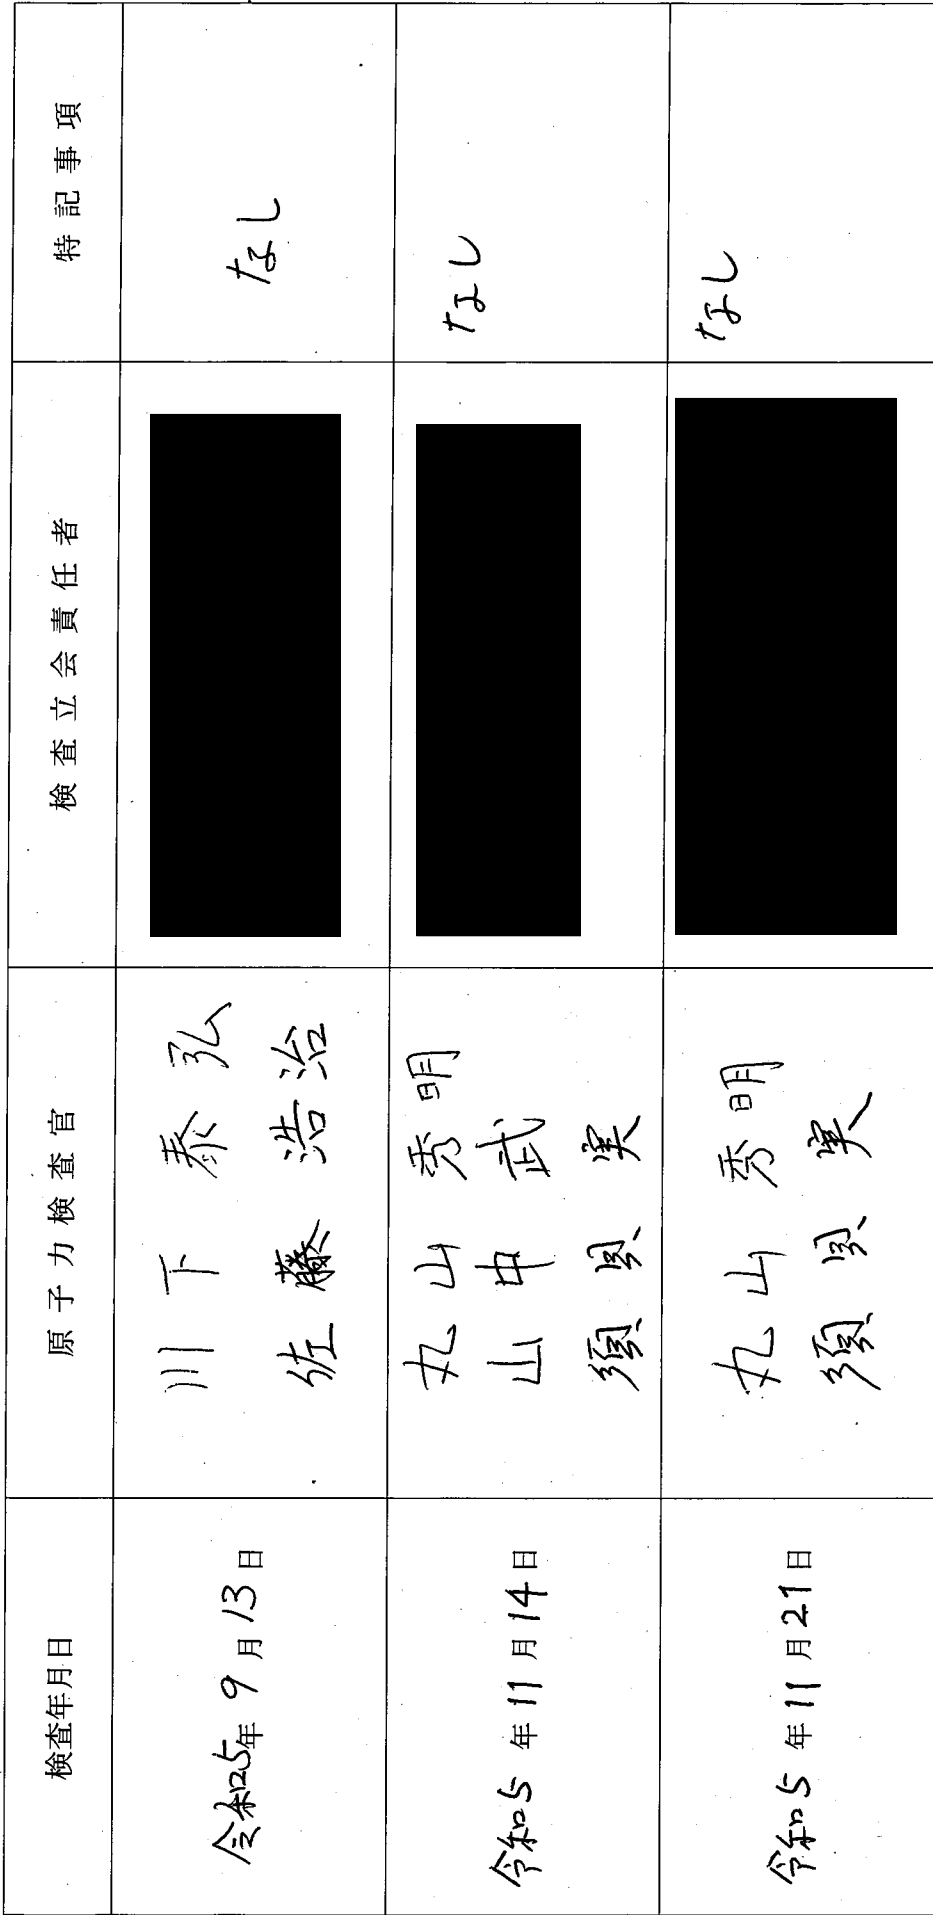 検査年月日
原子力検査官
検査立会責任者
特記事項
令和5年9月13日
川下 泰弘
佐藤 浩治
なし
令和5年11月14日
丸山 秀明
山中 武
須貝 実
なし
令和5年11月21日
丸山 秀明
須貝 実
なし